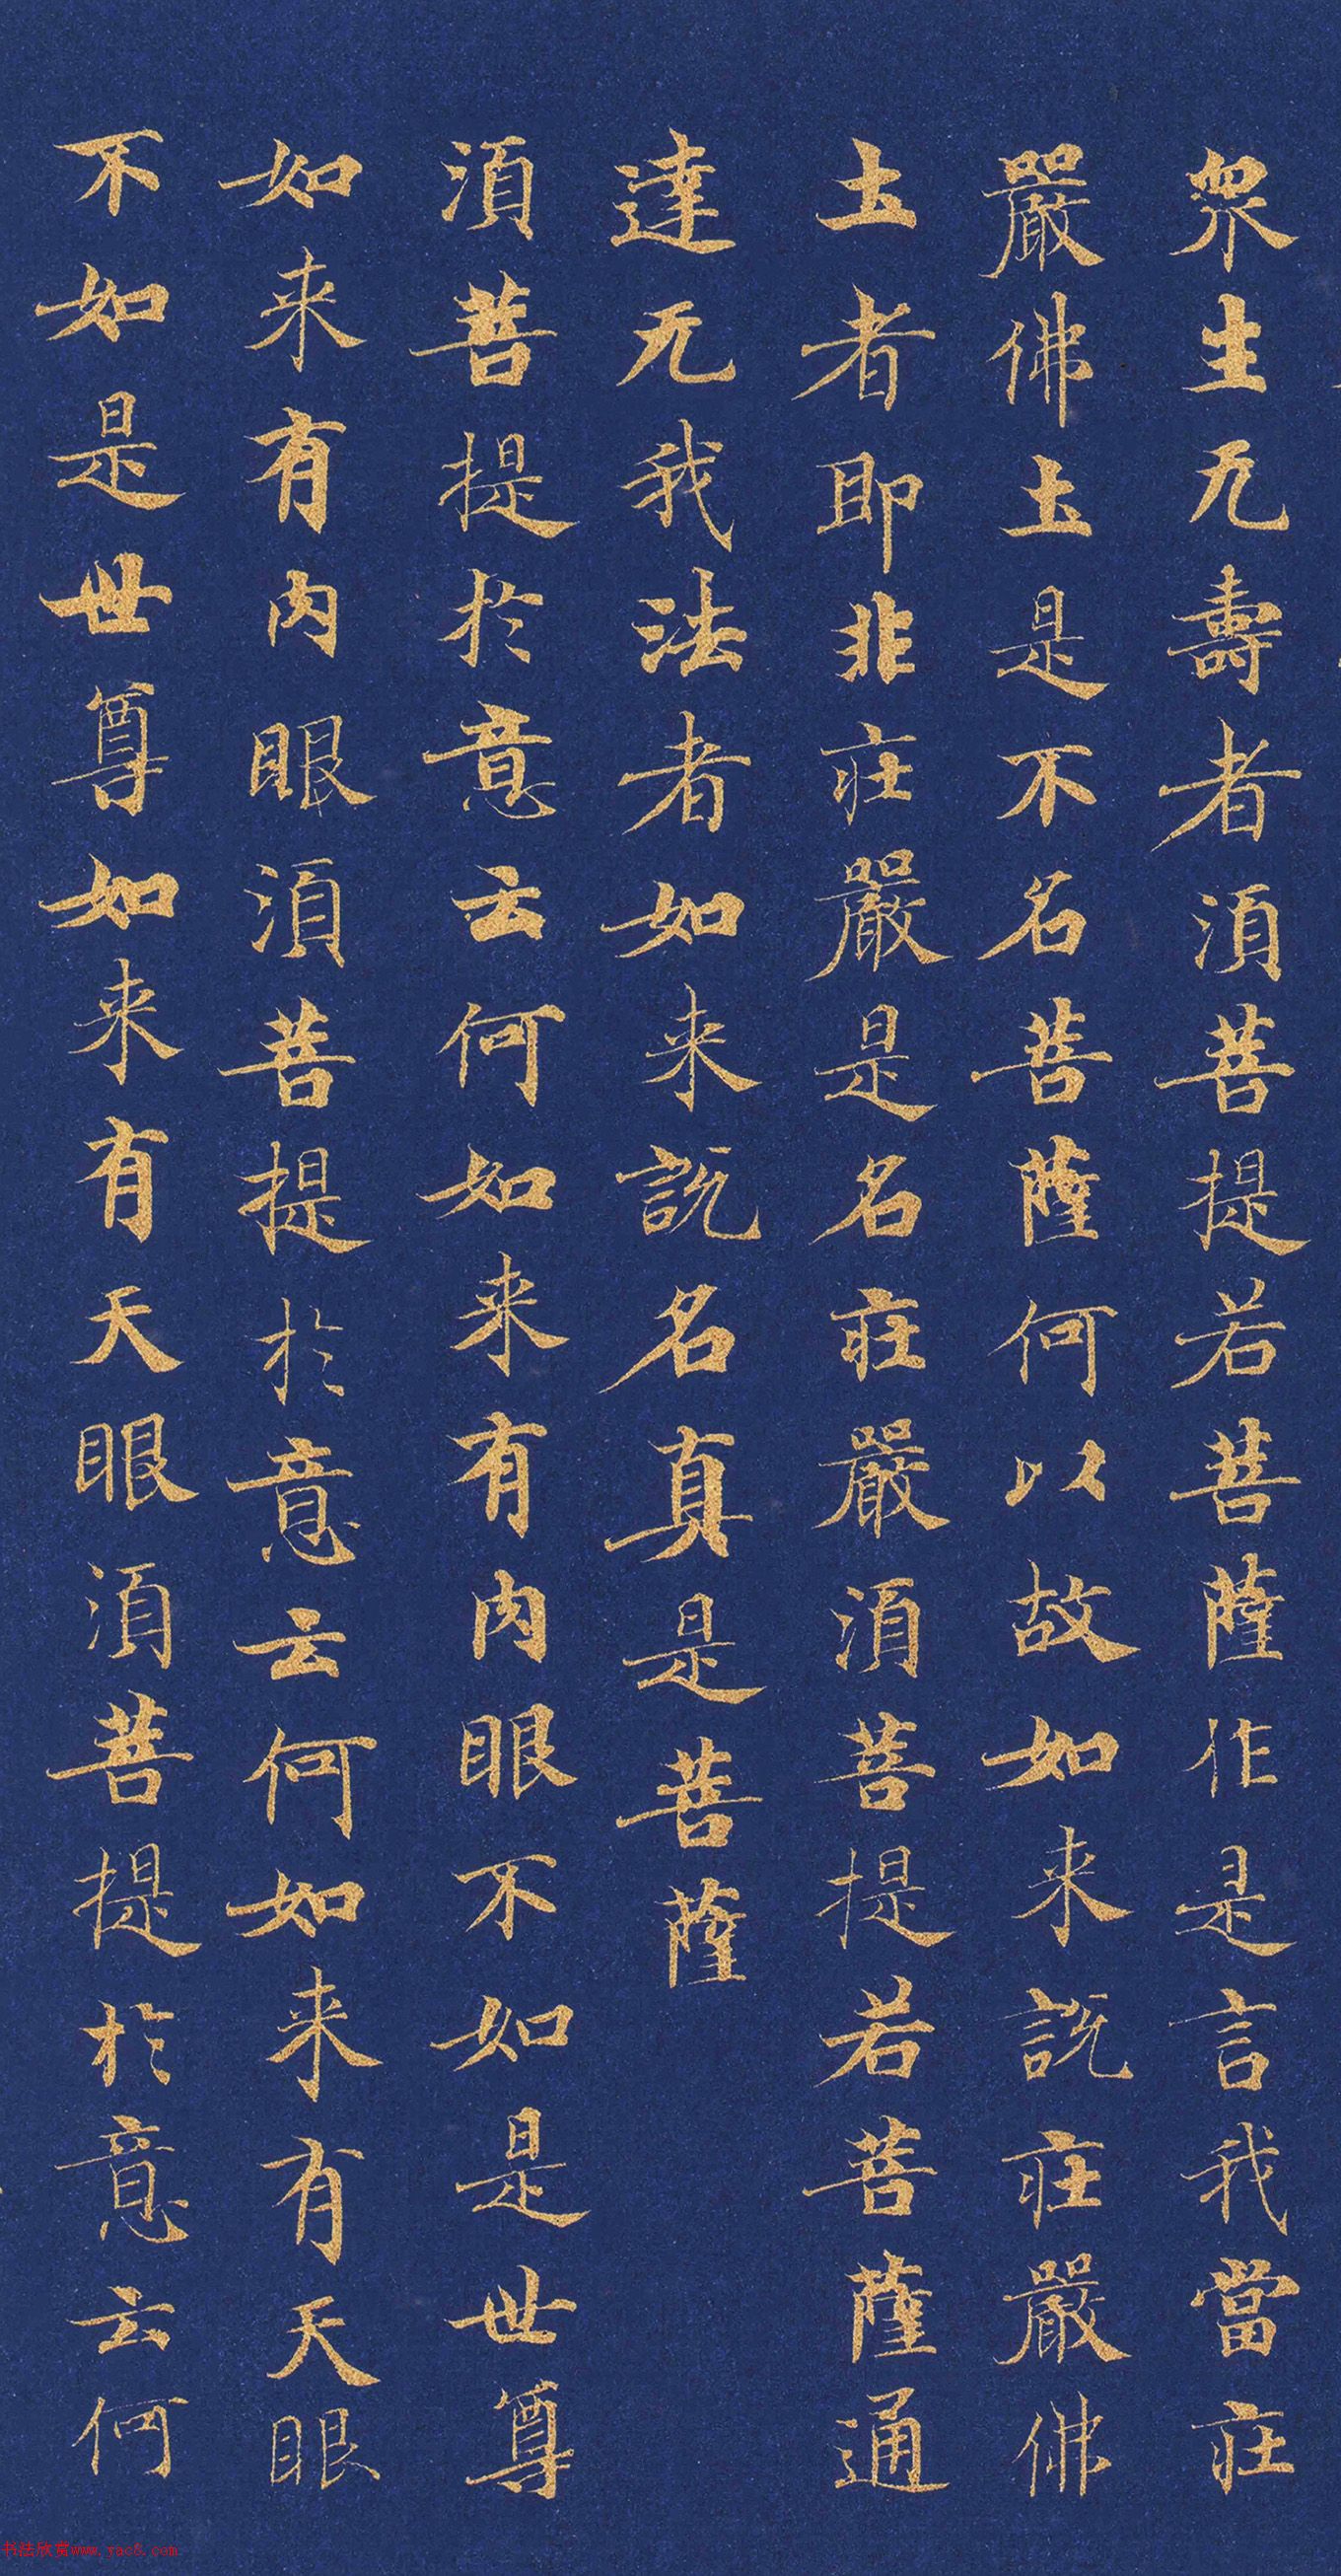 眾生无壽者湏菩提若菩薩作是言我當莊
嚴佛土是不名菩薩何以故如来説莊嚴佛
土者即非莊嚴是名莊嚴湏菩提若菩薩通
達无我法者如来説名真是菩薩
湏菩提於意云何如来有肉眼不如是世尊
如来有肉眼湏菩提於意云何如来有天眼
不如是世尊如来有天眼湏菩提於意云何
书法欣赏www.yac8.com